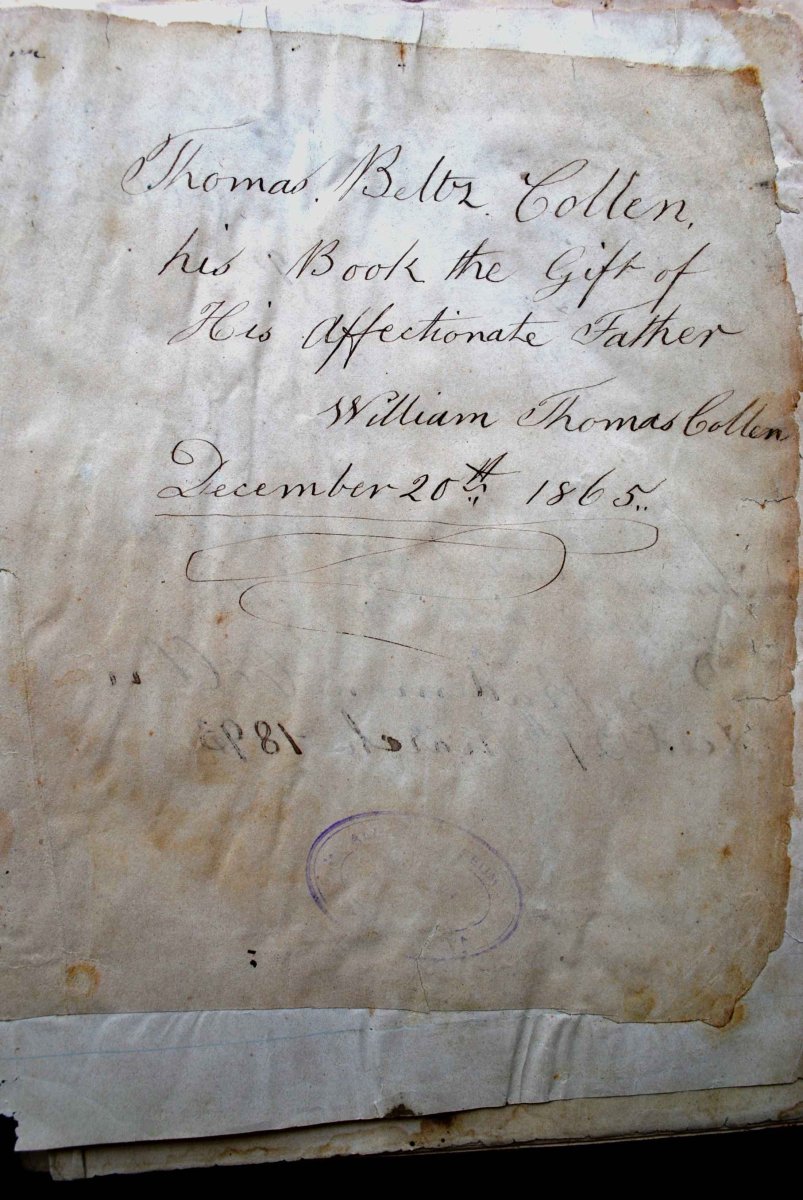 Thomas. Beltz. Collen,
his Book the Gift of
His Affectionate Father
William Thomas Collen
December 20th 1865
March 1893